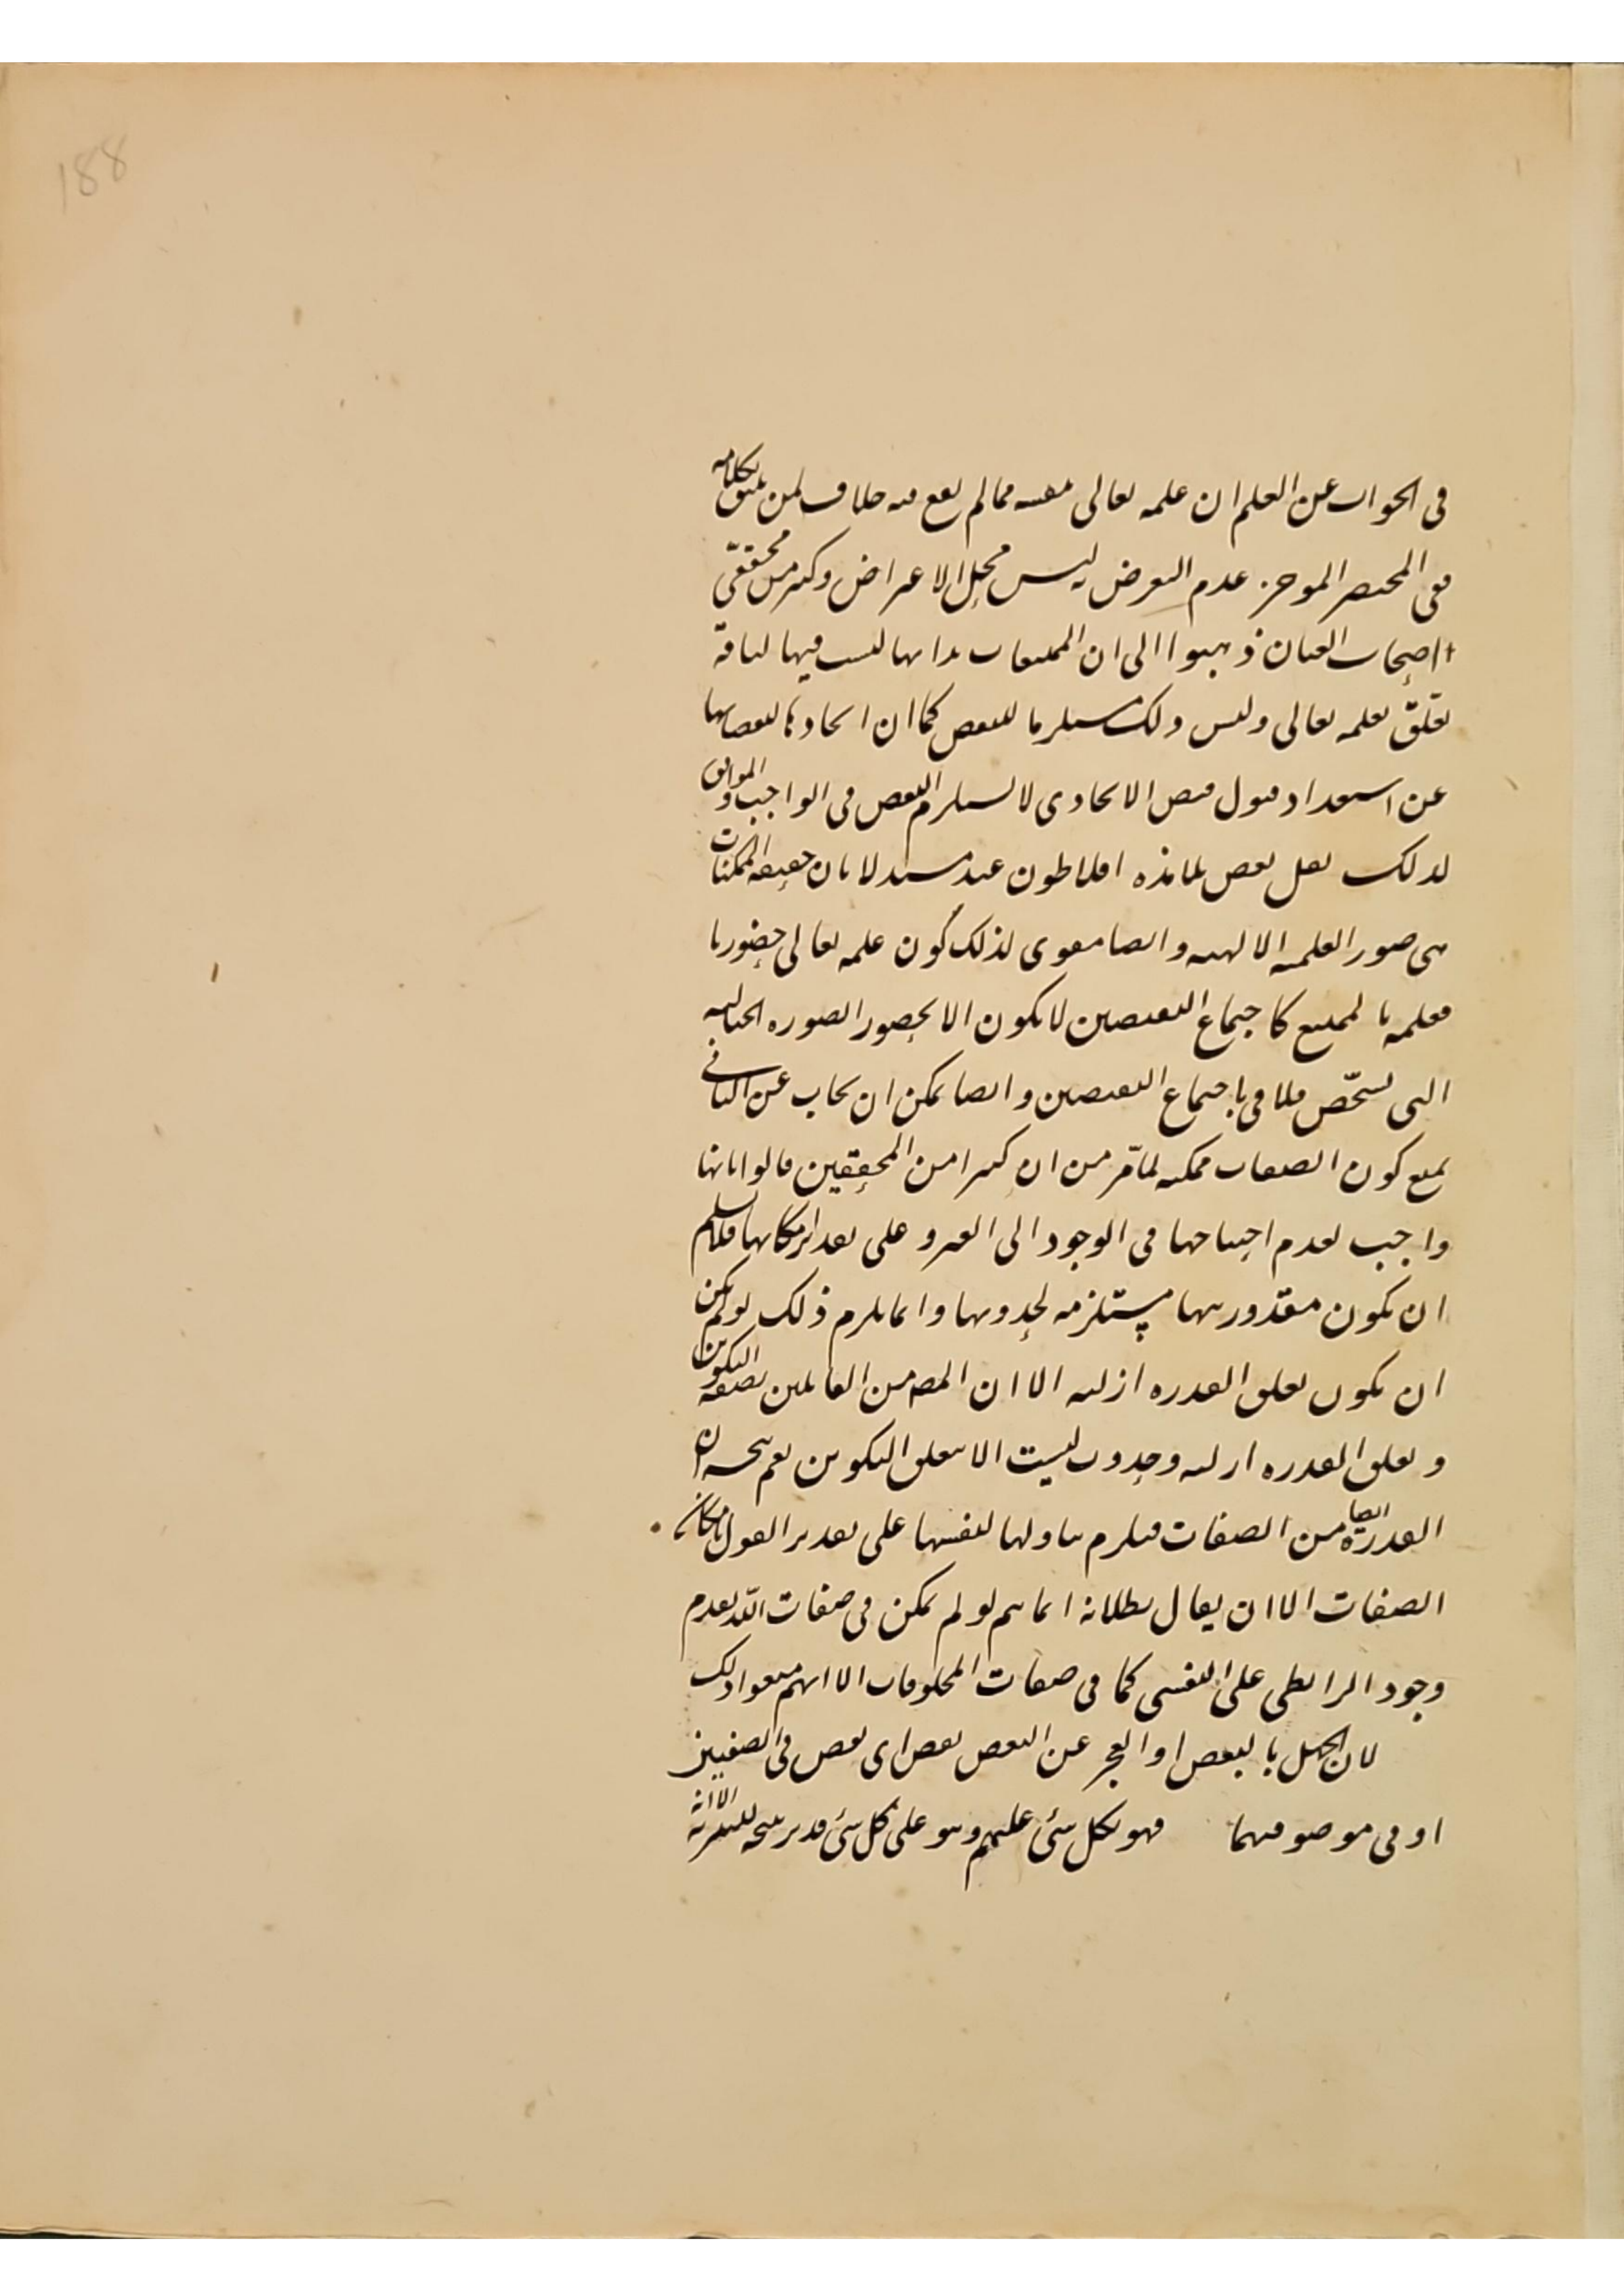 188
فى الجواب عن العلم ان علمه تعالى بنفسه مما لم يقع فيه خلاف لمن بكلامه
ففى المختصر الموجز عدم التعرض ليس محل الاعتراض وكثير من محققى
اصحاب العيان ذهبوا الى ان الممتنعات بذاتها ليست فيها لياقة
تعلّق بعلمه تعالى وليس ذلك مستلزما للنقص كما ان
عن استعداد قبول فيض الايجادى لا يستلزم النقص فى الواجب
لذلك نقل بعض تلامذه افلاطون عنه مستدلا بان حقيقه الممكنات
هى صور العلميه الالهيه وايضا مقوى لذلك كون علمه تعالى حضوريا
فعلمه بالممتنع كاجتماع النقيضين لا يكون الا بحضور الصوره الخياليه
التى باجتماع النقيضين وايضا يمكن ان يجاب عن الثانى
بمنع كون الصفات ممكنه لما مّر من ان كثيرا من المحققين قالوا بانها
واجب لعدم احتياجها فى الوجود الى الغير و على تقدير امكانها فلا نسلم
ان يكون مقدوريتها مستلزمه لحدوثها وانما يلزم ذلك لو لم يمكن
ان يكون تعلق القدره ازليه الا ان المصه من القائلين بصفه التكوين
و تعلق القدره ازليه وحدوث ليست الا بتعلق التكوين نعم يتجه ان
القدرة ايضا من الصفات فيلزم تناولها لنفسها على تقدير القول بامكان
الصفات الا ان يقال بطلانه انما يتم لو لم يمكن فى صفات الله تقدم
وجود الرابطى على النفسى كما فى صفات المخلوقات الا انهم منعوا ذلك
لان الجهل بالبعض او العجز عن البعض نقص اى نقص فى الصفتين
او فى موصوفهما فهو بكل شئ عليم وهو على كل شئ قدير الا انه